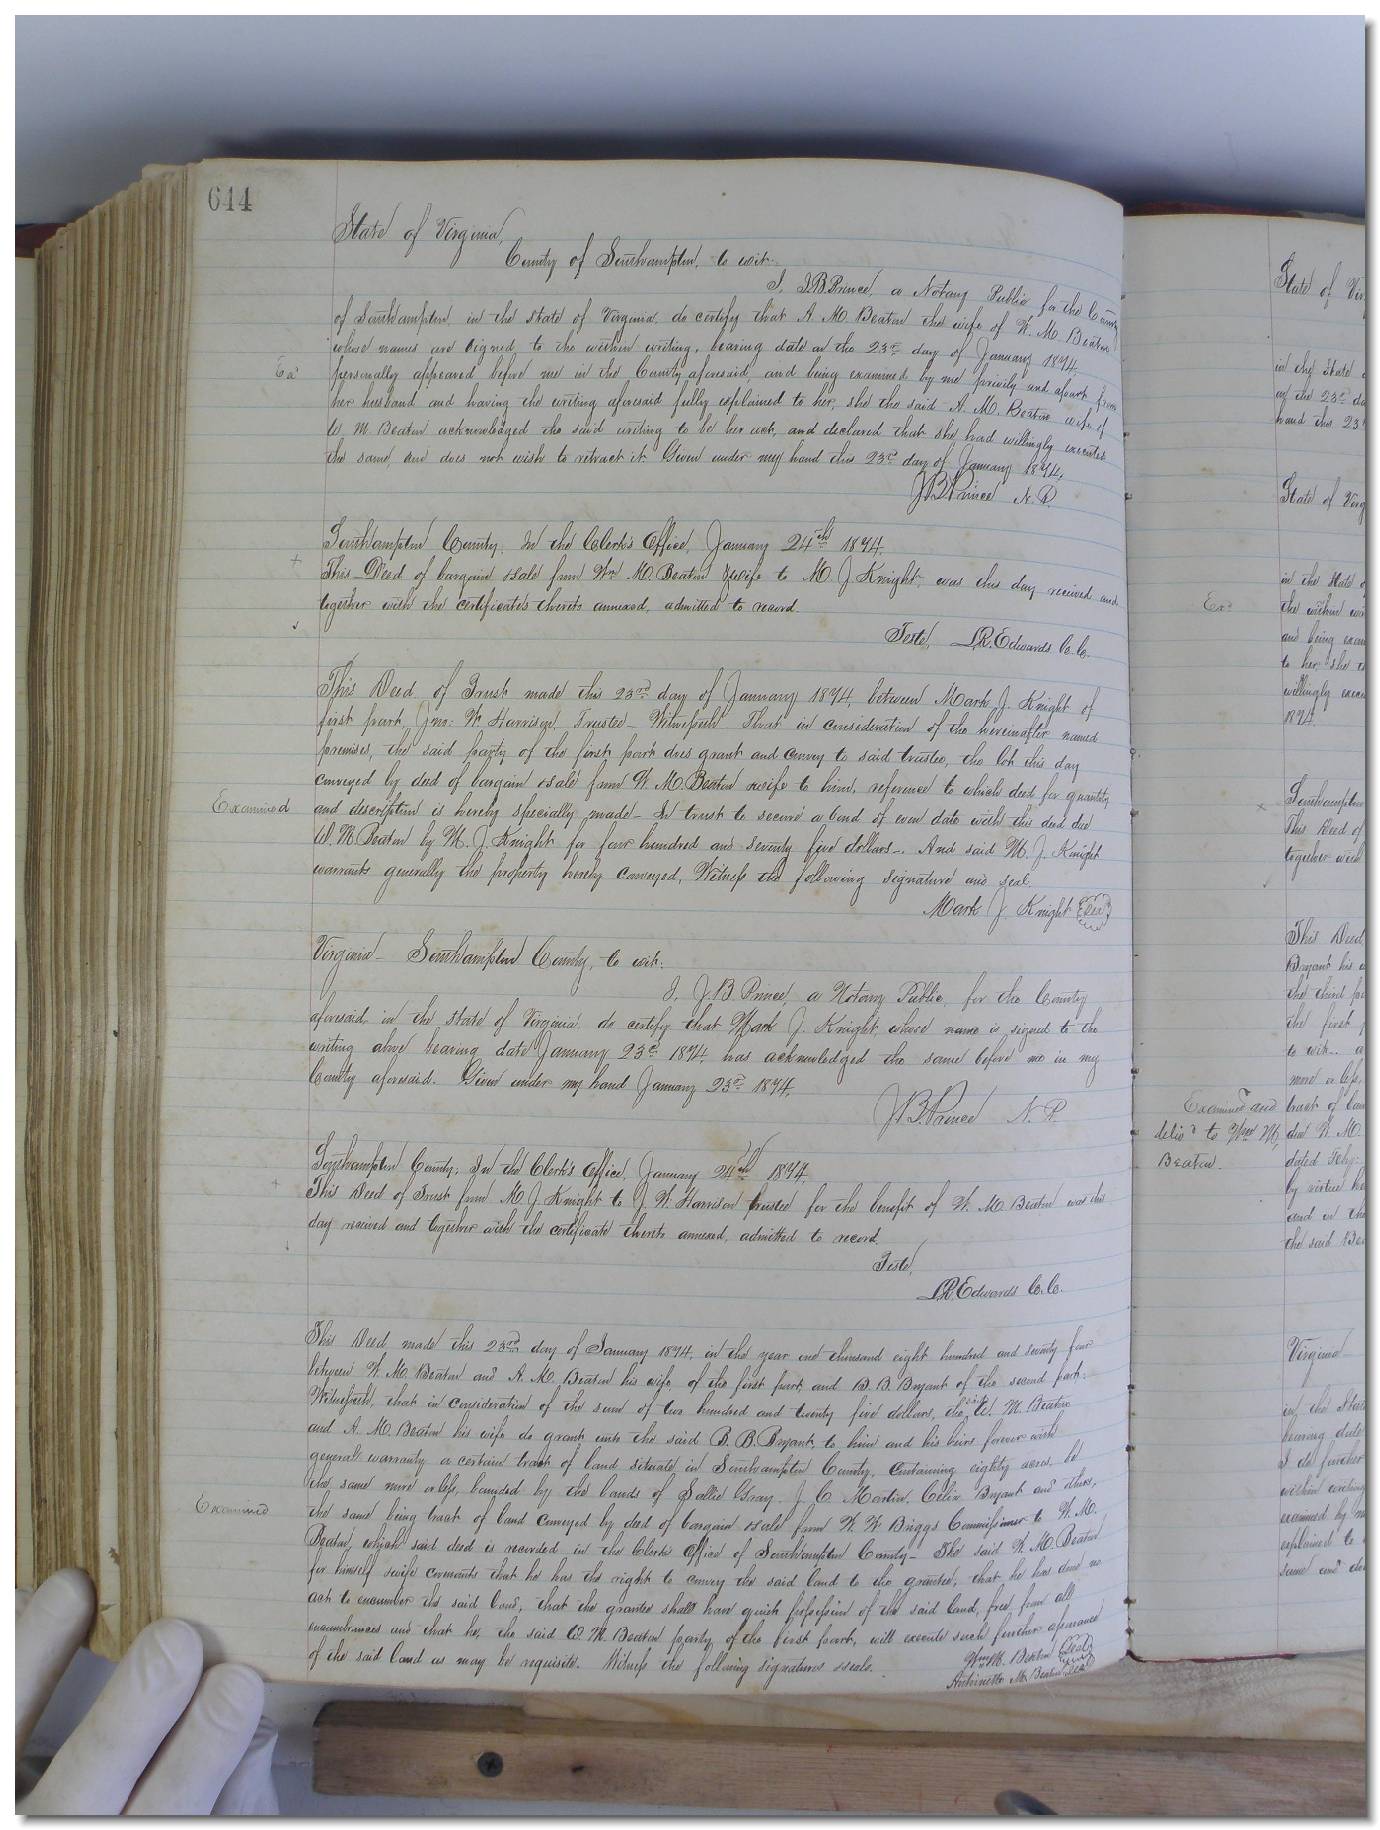 644
State of Virginia,
County of Southampton, to wit.
I, J.B. Prince, a Notary Public for the County
of Southampton, in the state of Virginia do certify that A. M. Beaton the wife of W. M. Beaton
whose names are signed to the within writing, bearing date on the 23rd day of January 1874,
Exd personally appeared before me in the County aforesaid, and being examined by me privily and apart from
her husband and having the writing aforesaid fully explained to her, she the said A. M. Beaton wife of
W. M. Beaton acknowledged the said writing to be her act, and declared that she had willingly executed
the same, and does not wish to retract it. Given under my hand this 23rd day of January 1874,
J.B. Prince N. P.
Southampton County, In the Clerk's Office, January 24th 1874,
This Deed of bargain & sale from Wm M. Beaton & wife to M. J Knight, was this day received and
together with the certificates thereto annexed, admitted to record.
Teste, L.R. Edwards C. C.
This Deed of Trust made this 23rd day of January 1874, between Mark J. Knight of
first part, Jno: W. Harrison, Trustee - Witnesseth That in consideration of the hereinafter named
premises, the said party of the first part does grant and convey to said trustee, the lot this day
conveyed by deed of bargain & sale from W. M. Beaton & wife to him, reference to which deed for quantity
Examined and description is hereby specially made - In trust to secure a bond of even date with this deed due
W. M. Beaton by M. J. Knight for four hundred and seventy five dollars -. And said M. J. Knight
warrants generally the property hereby conveyed, Witness the following signature and seal.
Mark J. Knight Seal
Virginia - Southampton County, to wit:
I, J.B. Prince, a Notary Public, for the County
aforesaid in the state of Virginia do certify that Mark J. Knight, whose name is signed to the
writing above bearing date January 23rd 1874, has acknowledged the same before me in my
County aforesaid. Given under my hand January 23rd 1874,
J.B. Prince N. P.
Southampton County, In the Clerk's Office, January 24th 1874,
This Deed of Trust from M. J. Knight to J. W. Harrison trustee for the benefit of W. M. Beaton was this
day received and together with the certificate thereto annexed, admitted to record.
Teste,
L.R. Edwards C. C.
This Deed made this 23rd day of January 1874, in the year one thousand eight hundred and seventy four
between W. M. Beaton and A. M. Beaton his wife, of the first part, and B. B. Bryant of the second part:
Witnesseth, that in consideration of the sum of two hundred and twenty five dollars, the said W. M. Beaton
and A. M. Beaton his wife do grant unto the said B. B. Bryant, to him and his heirs forever with
general warranty a certain tract of land situate in Southampton County, Containing eighty acres, be
the same more or less, bounded by the lands of Sallie Gray, J. C. Martin, Celia Bryant and others,
Examined the same being tract of land conveyed by deed of bargain & sale from W. W. Briggs Commissioner to W. M.
Beaton, which said deed is recorded in the Clerks Office of Southampton County - The said W. M. Beaton
for himself & wife covenants that he has the right to convey the said land to the grantee, that he has done no
act to encumber the said land, that the grantee shall have quiet possession of the said land, free from all
encumbrances and that he, the said W. M. Beaton party of the first part, will execute such further assurances
of the said land as may be requisite. Witness the following signatures & seals.
Wm M. Beaton Seal
Antoinette M. Beaton Seal
State of Vir
in the State
on the 23rd
hand this 23
State of Virg
in the state
Exd the within
and being exam
to her, she
willingly execu
1874
Southampton
This Deed of
together with
This Deed
Bryant his
the third
the first
to wit
more or less,
Examined and tract of
deliv'd to Wm M. W. M.
Beaton. dated
by virtue
and in the
the said
Virginia
in the State
bearing date
I do further
within writing
examined by
explained to
same and